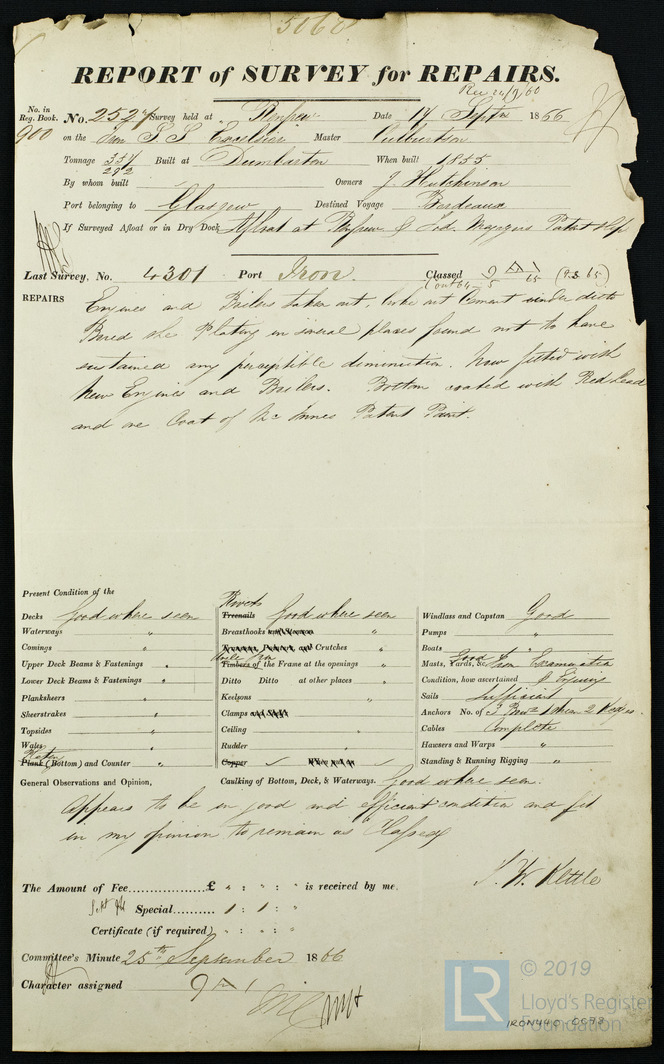 5060
REPORT of SURVEY for REPAIRS.
No. in Reg. Book. No. 2527 Survey held at Renfrew Date 14 Septr 1866
900 on the Iron S S Excelsior Master Culbertson
Tonnage 354 292 Built at Dumbarton When built 1855
By whom built Owners J. Hutchinson
Port belonging to Glasgow Destined Voyage Bordeaux
If Surveyed Afloat or in Dry Dock Afloat at Renfrew & Patent Slip
Last Survey, No. 4301 Port Iron. Classed 9 A 1 65
REPAIRS Engines and Boilers taken out, Cement under ditto
Bored the Plating in several places found not to have
sustained any perceptible diminution. Now fitted with
New Engines and Boilers. Bottom coated with Red Lead
and one Coat of Mc Innes Patent Paint.
Present Condition of the
Decks Good where seen
Waterways "
Comings "
Upper Deck Beams & Fastenings "
Lower Deck Beams & Fastenings "
Planksheers "
Sheerstrakes "
Topsides "
Wales
Plates
Plank (Bottom) and Counter "
Rivets
Treenails Good where seen
Breasthooks "
Crutches "
Timbers of the Frame at the openings "
Ditto Ditto at other places "
Keelsons "
Clamps and Shelf
Ceiling "
Rudder "
Copper
Windlass and Capstan Good
Pumps "
Boats "
Masts, Yards, &c Good from Examination
Condition, how ascertained
Sails Sufficient
Anchors No. of
Cables Complete
Hawsers and Warps "
Standing & Running Rigging "
General Observations and Opinion, Caulking of Bottom, Deck, & Waterways. Good where seen.
Appears to be in good and efficient condition and fit
in my opinion to remain as Classed
J. W. Kettle
The Amount of Fee £ " : " : " is received by me.
Special 1 : 1 : "
Certificate (if required) " : " : "
Committee's Minute 25th September 1866
Character assigned 9 A 1
© 2019
LR
Lloyd's Register
Foundation
IRON440-0073